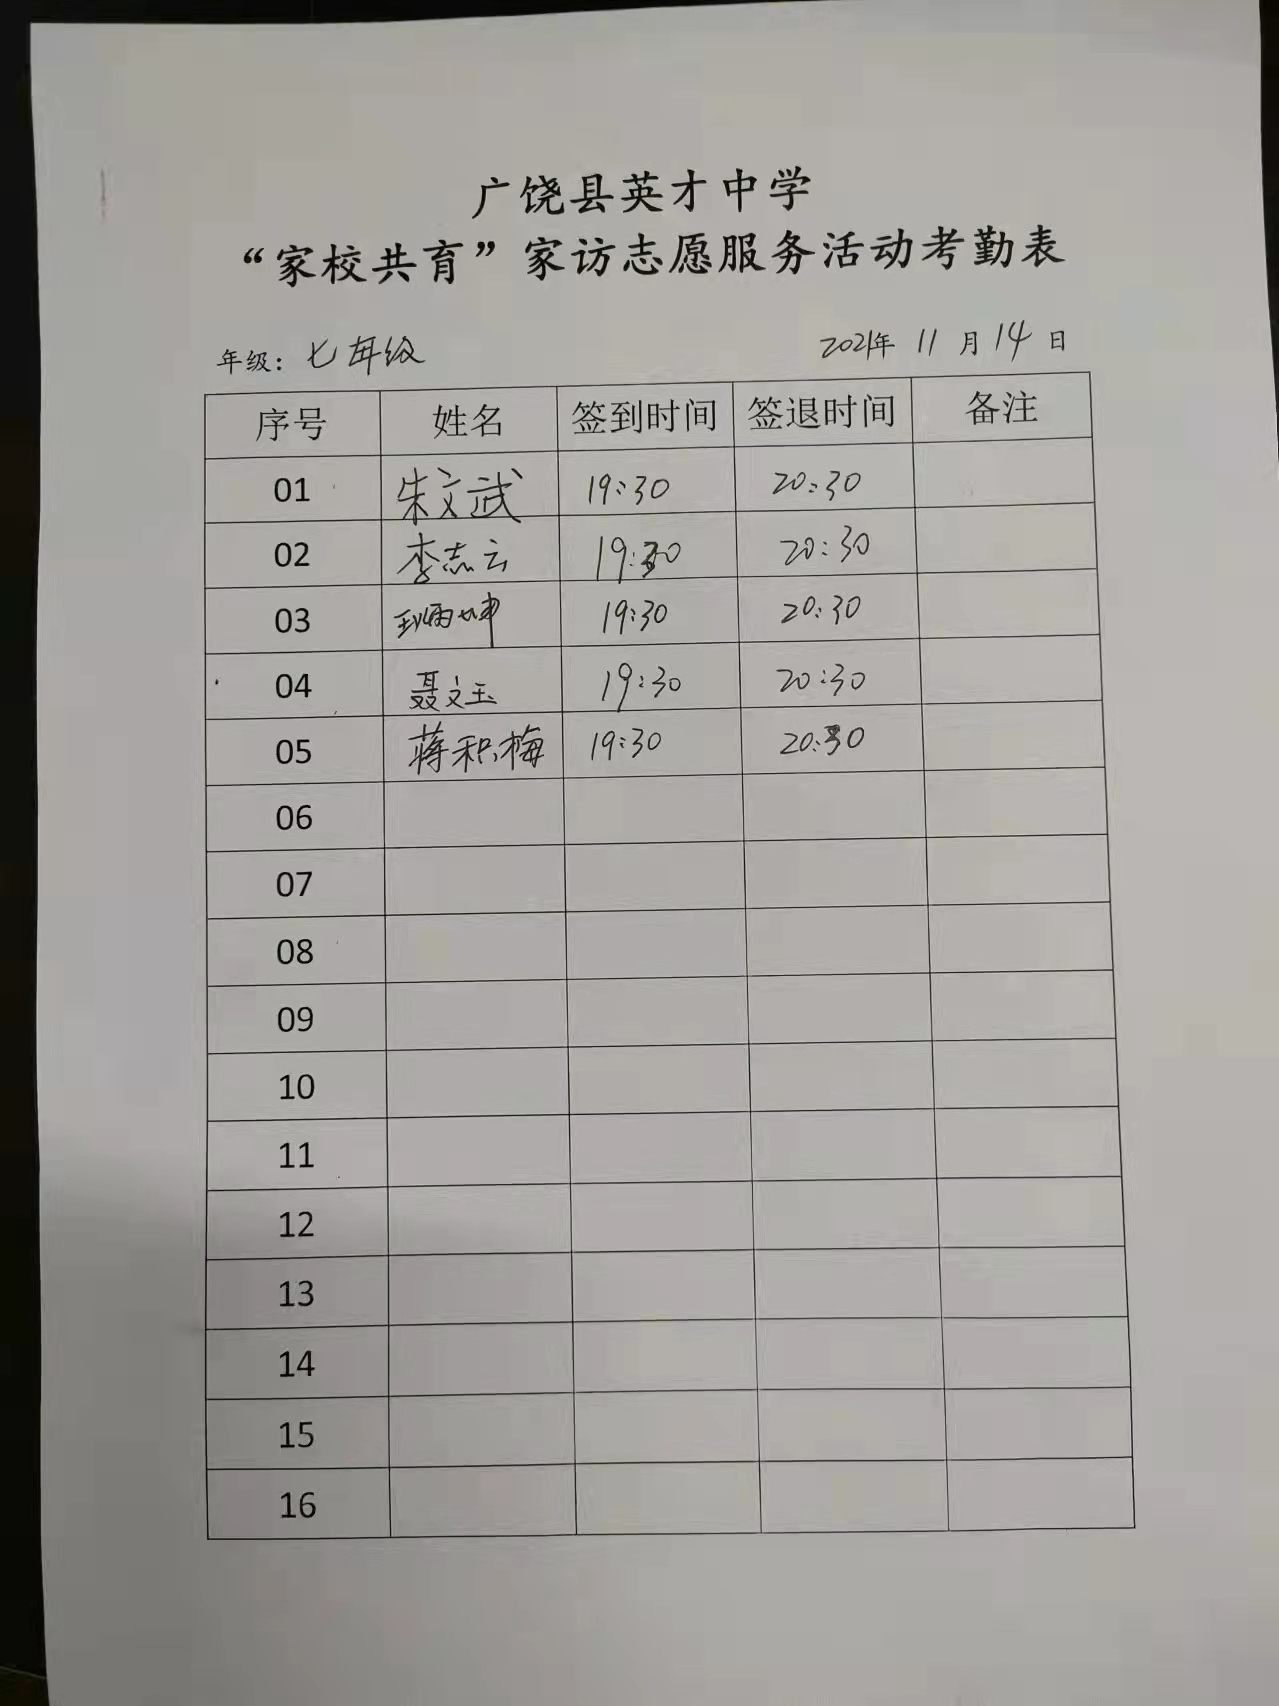 广饶县英才中学
“家校共育”家访志愿服务活动考勤表
年级：七年级 2021年 11 月 14 日
序号 姓名 签到时间 签退时间 备注
01 朱文武 19:30 20:30
02 李志云 19:30 20:30
03 19:30 20:30
04 聂文玉 19:30 20:30
05 蒋积梅 19:30 20:30
06
07
08
09
10
11
12
13
14
15
16